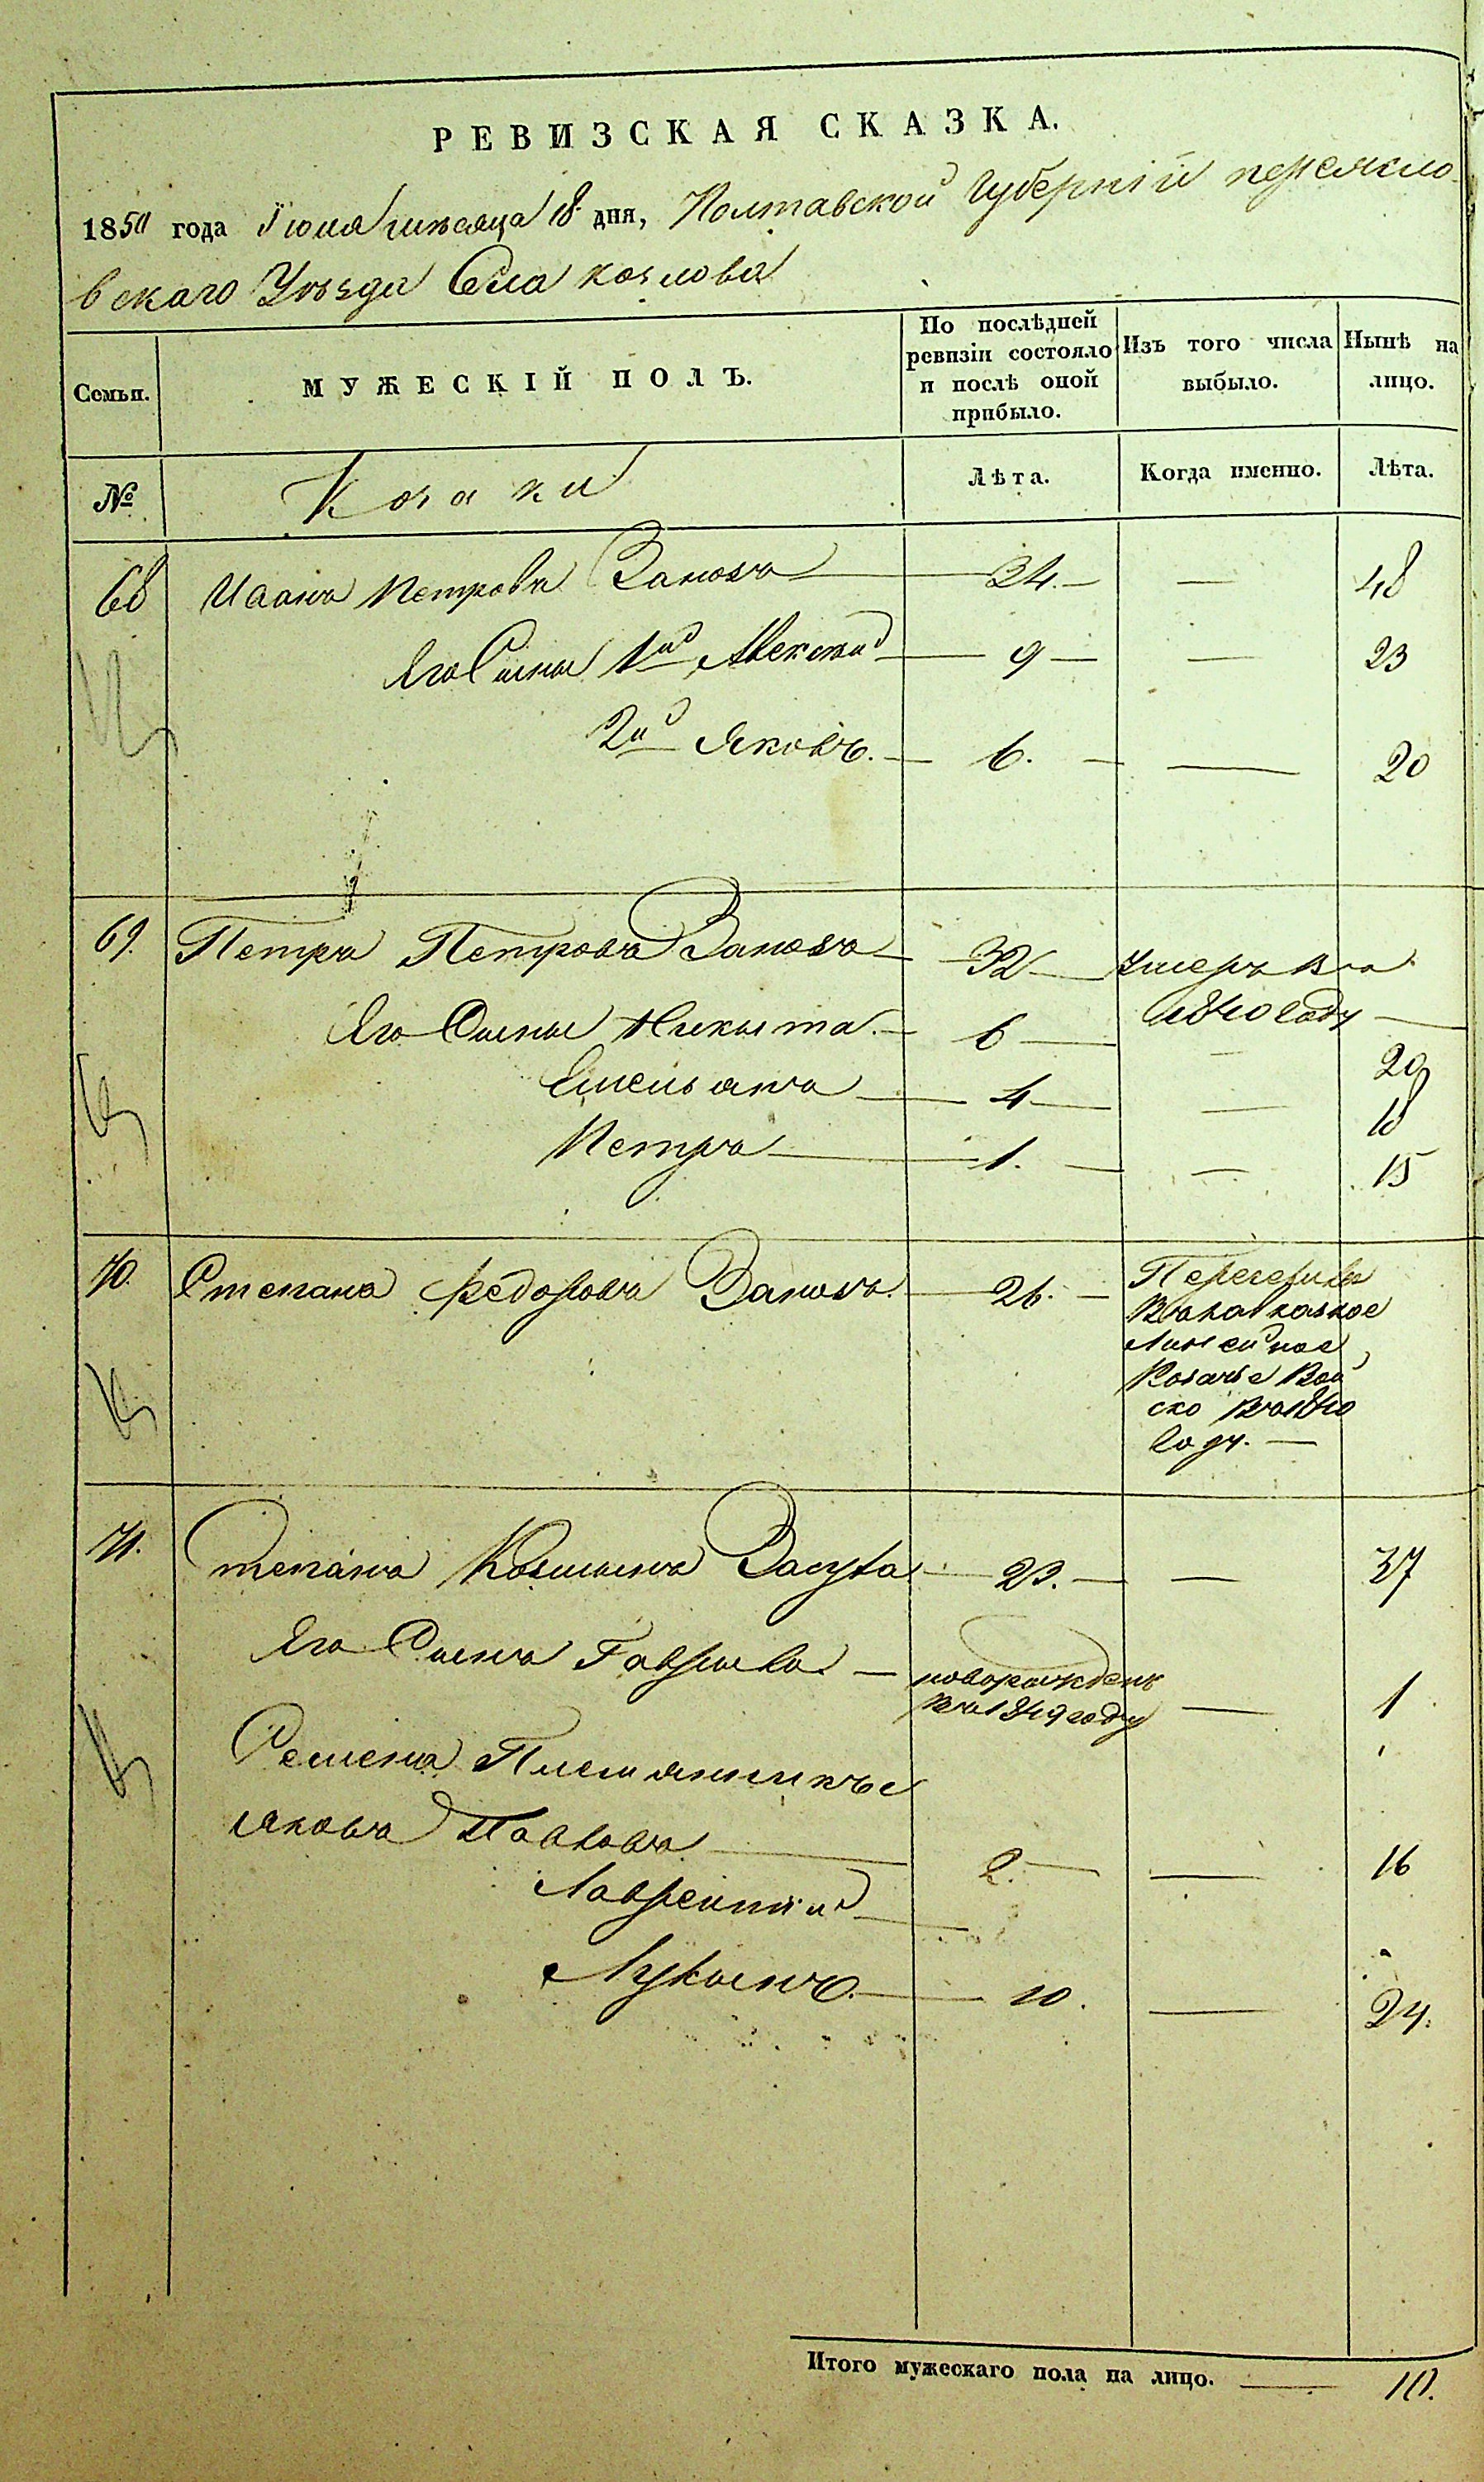 РЕВИЗСКАЯ СКАЗКА.
1850 года Іюля мѣсяца 18 дня, Полтавской Губерніи переясло
вскаго Уѣзда Села козлова
Семьи.
МУЖЕСКІЙ ПОЛЪ.
По послѣдней ревизіи состояло и послѣ оной прибыло.
Изъ того числа выбыло.
Нынѣ на лицо.
№ Козаки Лѣта. Когда именно. Лѣта.
68 Иванъ Петровъ 34. — 48
Его Сыны 1й Алексѣй 9 — 23
2й Яковъ. 6. — 20
69. Петръ Петровъ 32 Умеръ въ
1840 году
Его Сыны Никита. 6 — 20
Емельянъ 4 — 18
Петръ 1. — 15
70. Степанъ Федоровъ 26. Перечисленъ
въ кавказкое
Линейное
Козачье Вой
ско въ 1840
году.
71. Степанъ Козминъ 23. — 37
Его Сынъ Гаврило новорожденъ
въ 1849 году — 1
Племянники
Яковъ Павловъ 2. — 16
Лаврентій
Лукинъ. 10. — 24.
Итого мужескаго пола на лицо. 10.